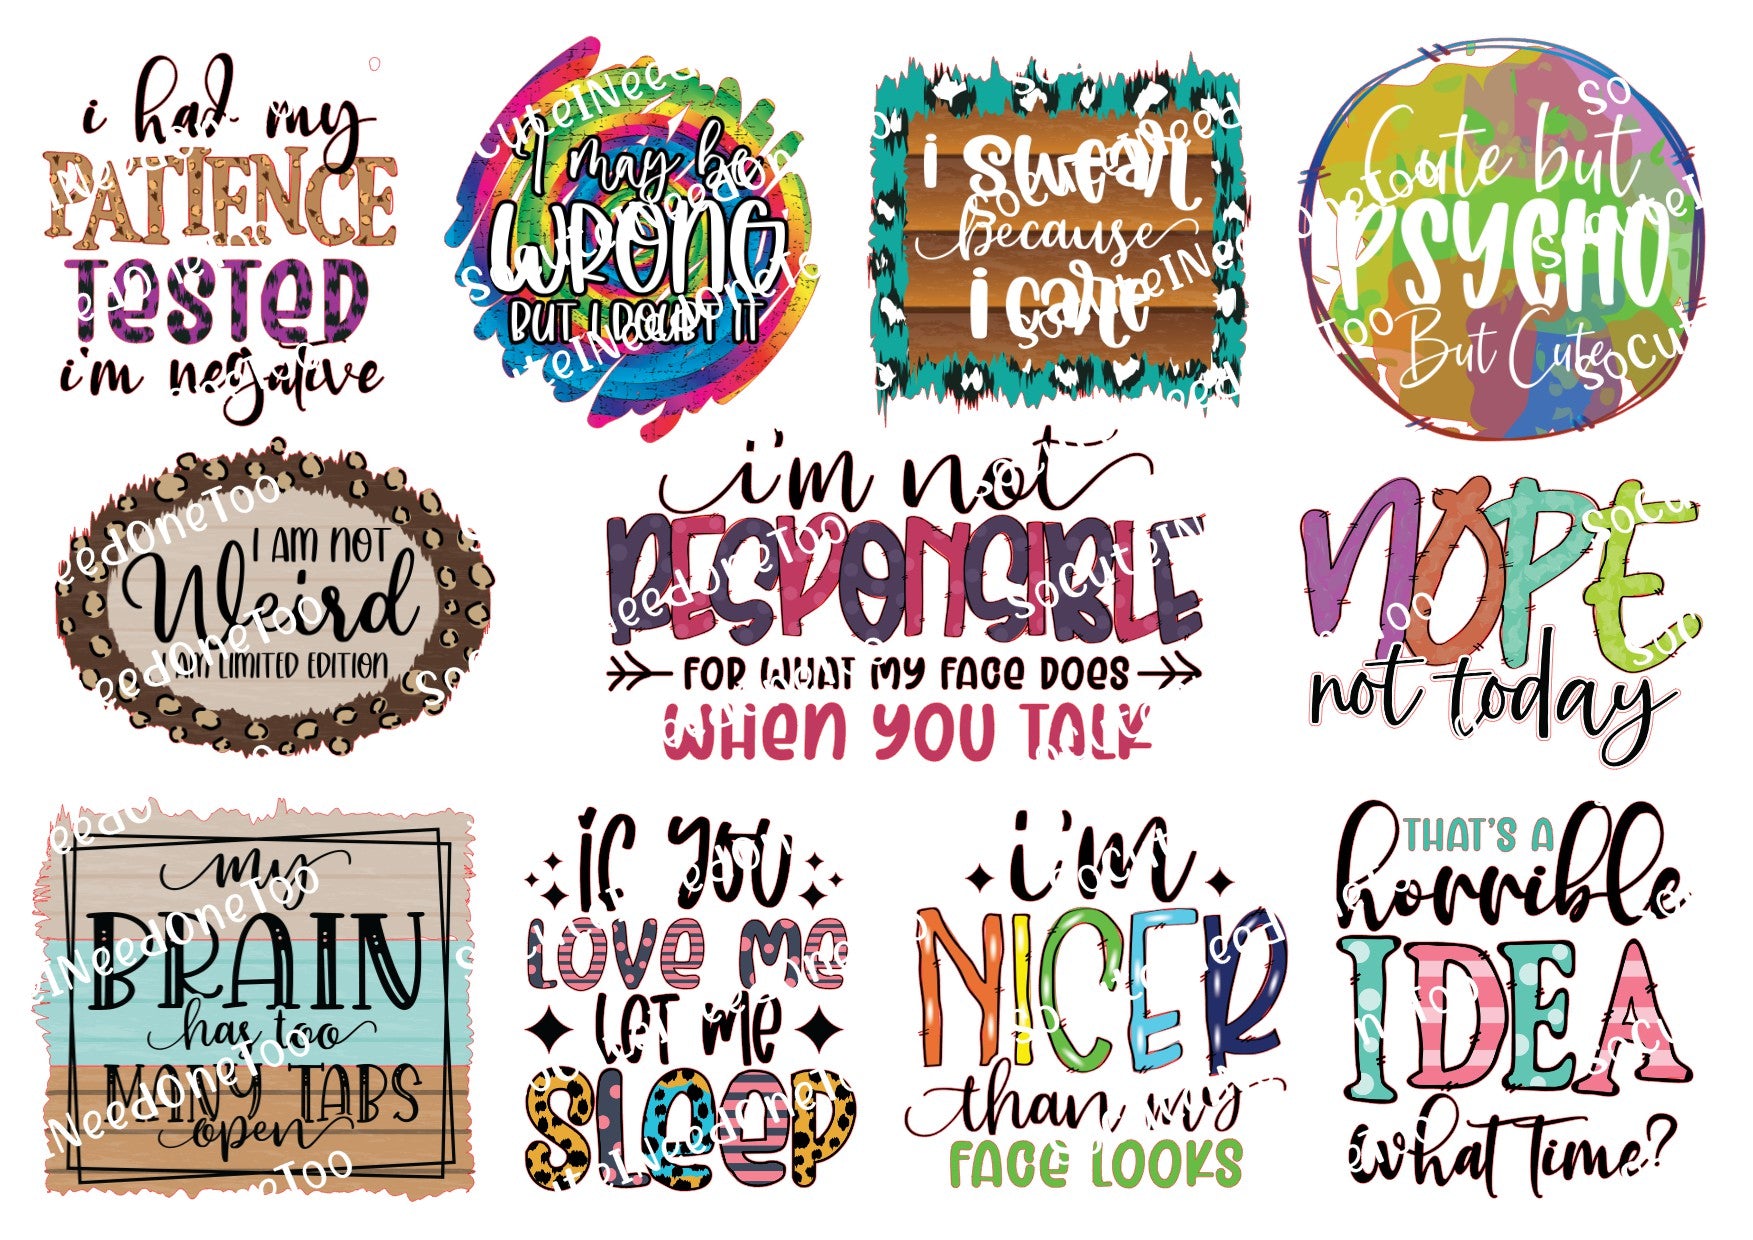 i had my
PATIENCE
TESTED
i'm negative
I may be
WRONG
BUT I DOUBT IT
i swear
because
i care
Cute but
PSYCHO
But Cute
I AM NOT
Weird
I AM LIMITED EDITION
i'm not
RESPONSIBLE
FOR WHAT MY FACE DOES
WHEN YOU TALK
NOPE
not today
my
BRAIN
has too
MANY TABS
open
if you
LOVE ME
LET ME
SLEEP
i'm
NICER
than my
FACE LOOKS
THAT'S A
horrible
IDEA
what time?
SoCuteINeedOneToo